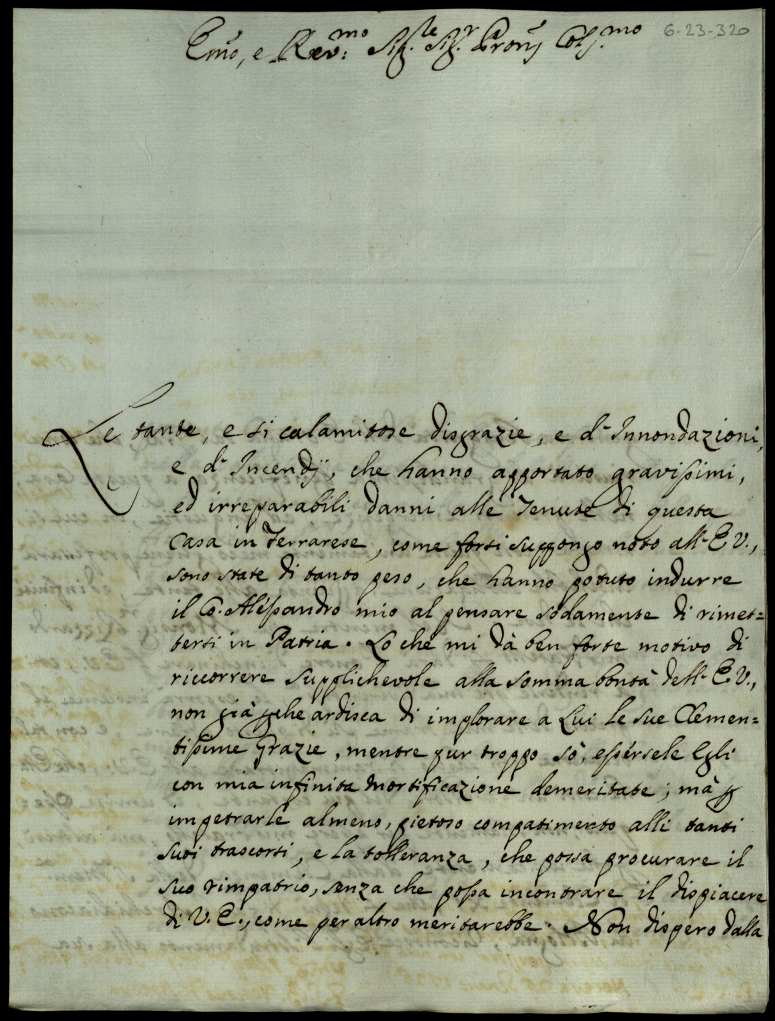 6-23-320
Em̃o, e Rev:mo Sig.le Sig.r Prõn Col.mo
Le tante, e si calamitose disgrazie, e d'Innondazioni,
e d'Incendÿ, che hanno apportato gravissimi,
ed irreparabili danni alle Tenute di questa
Casa in Ferrarese, come forsi suppongo noto all'E.V.,
sono state di tanto peso, che hanno potuto indurre
il Co. Alessandro mio al pensare sodamente di rimet=
tersi in Patria. Lo che mi dà ben forte motivo di
riccorrere supplichevole alla somma bontà dell'E.V.,
non già che ardisca di implorare a Lui le sue Clemen=
tissime Grazie, mentre pur troppo sò, essersele Egli
con mia infinita mortificazione demeritate; mà p
impetrarle almeno, pietoso compatimento alli tanti
suoi trascorsi, e la tolleranza, che possa procurare il
suo rimpatrio, senza che possa incontrare il dispiacere
di V.E., come per altro meritarebbe. Non dispero dalla